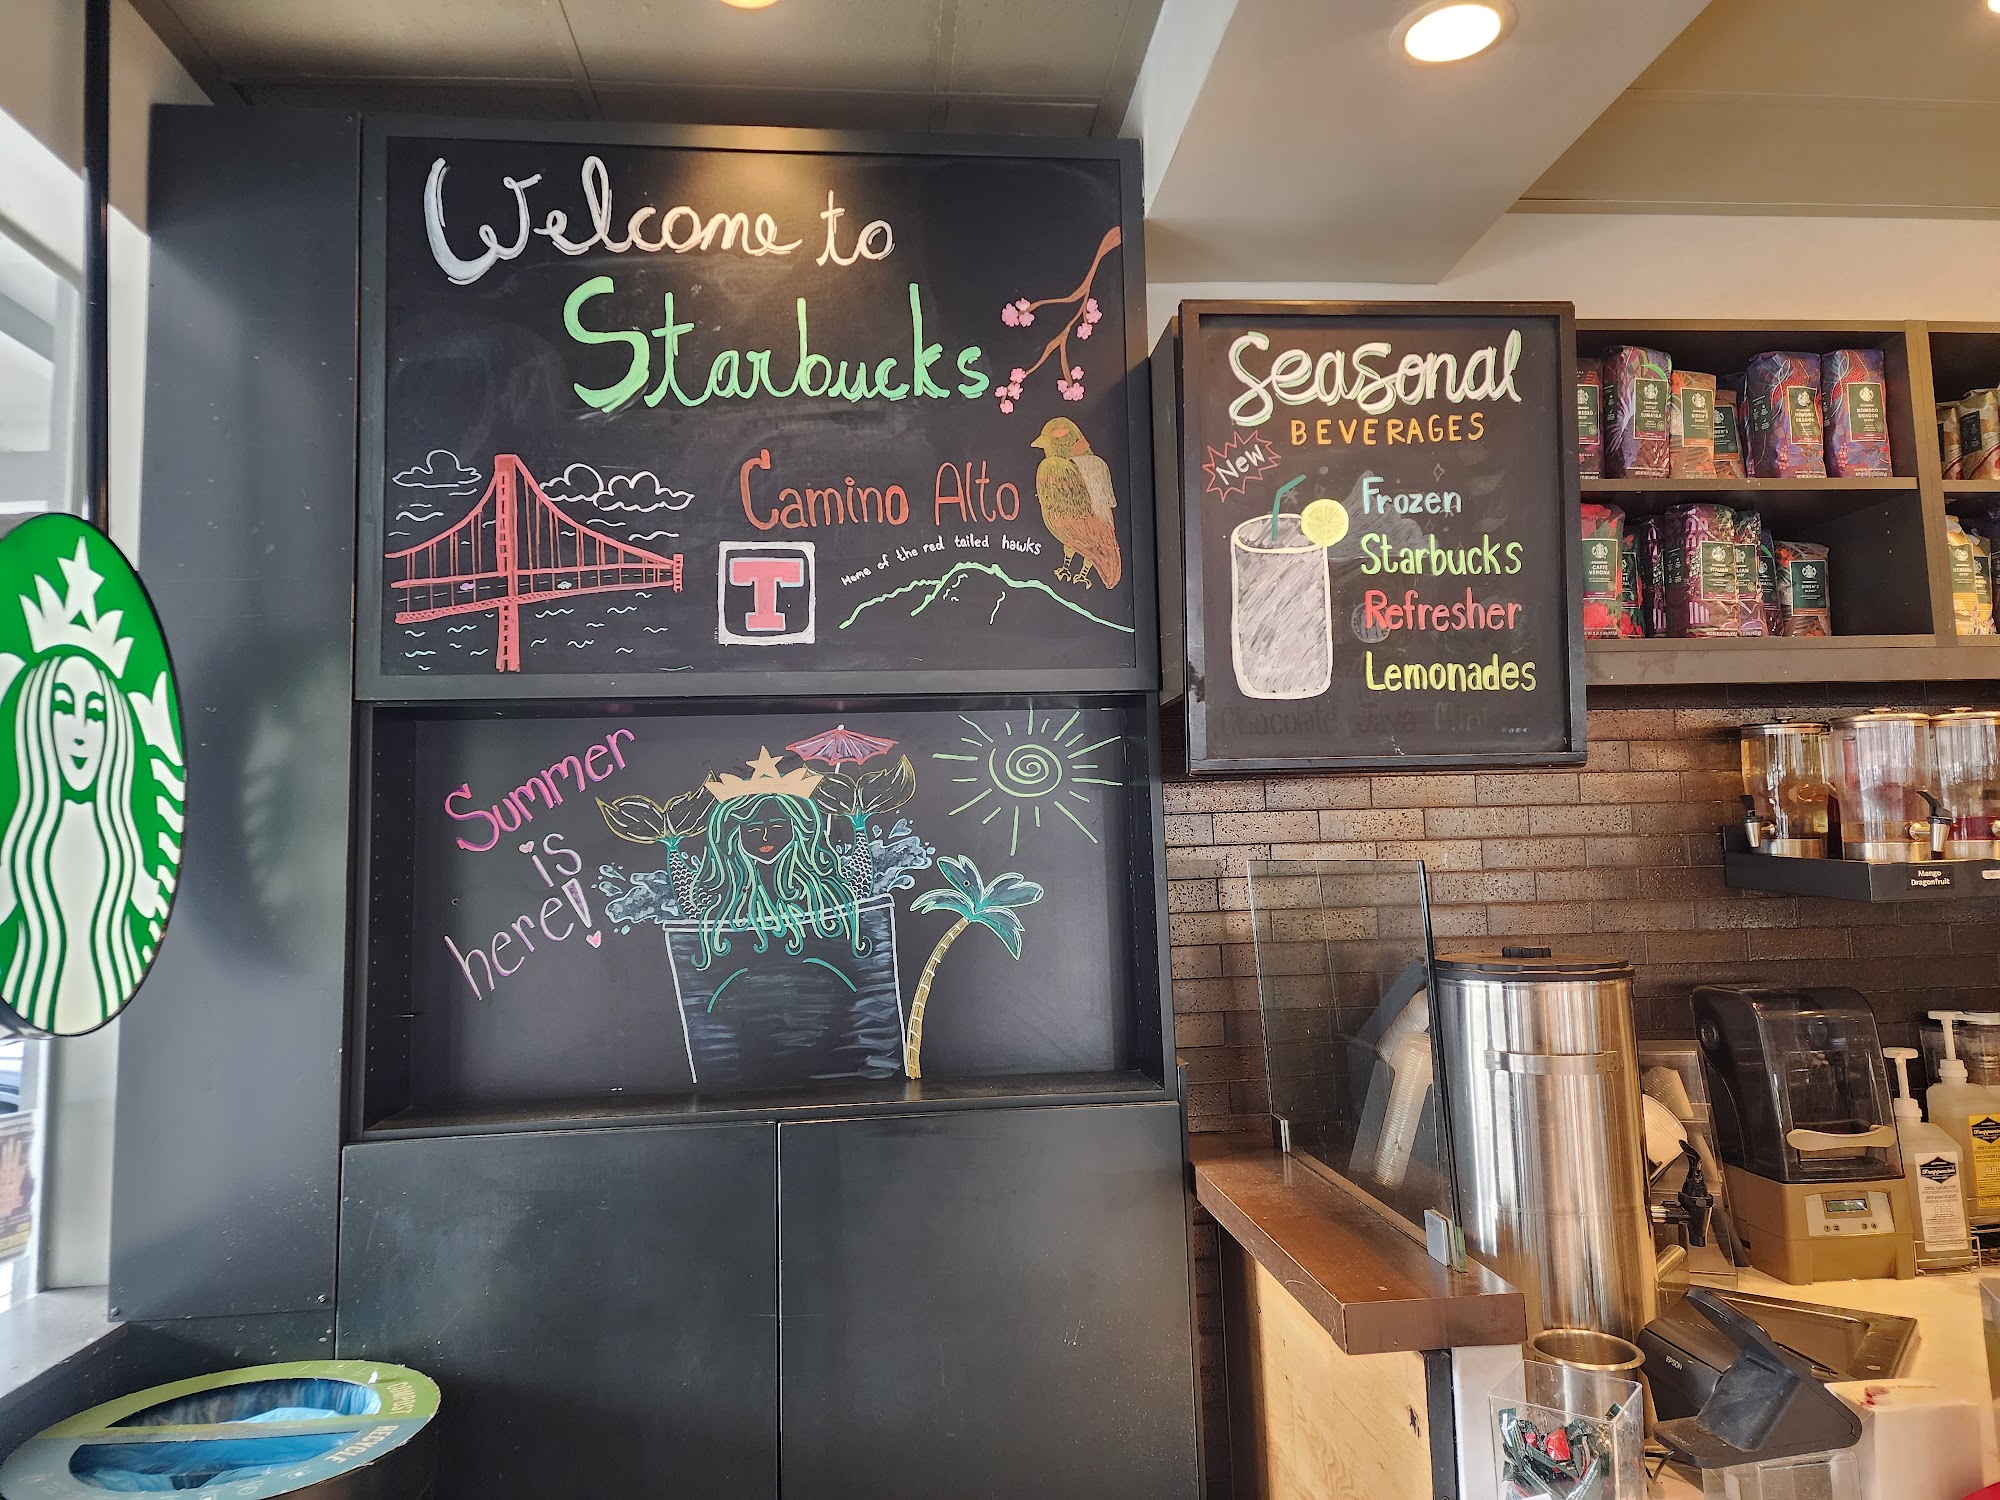 Welcome to
Starbucks
Camino Alto
Home of the red tailed hawks
T
Summer
is
here!
Seasonal
BEVERAGES
New
Frozen
Starbucks
Refresher
Lemonades
Chocolate Java Mint
SUMATRA
KOMODO
DRAGON
CAFFÈ
VERONA
ITALIAN
SIREN'S
Mango
Dragonfruit
EPSON
COMPOST
RECYCLE